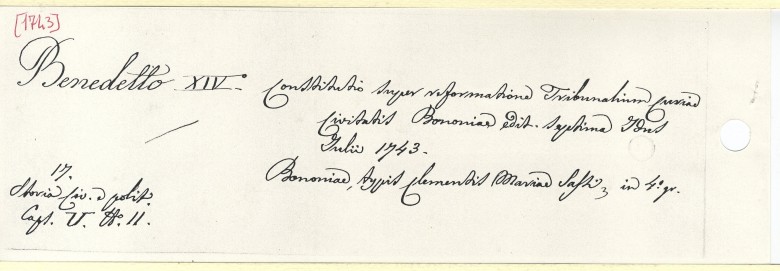 [1743]
Benedetto XIV.°
Constitutio super reformatione Tribunalium Curiae
Civitatis Bononiae edit. septima Idus
Julii 1743.
Bononiae, typis Clementis Mariae Sassi, in 4° gr.
17.
Storia Civ. e polit.
Cart. V. N.° 11.